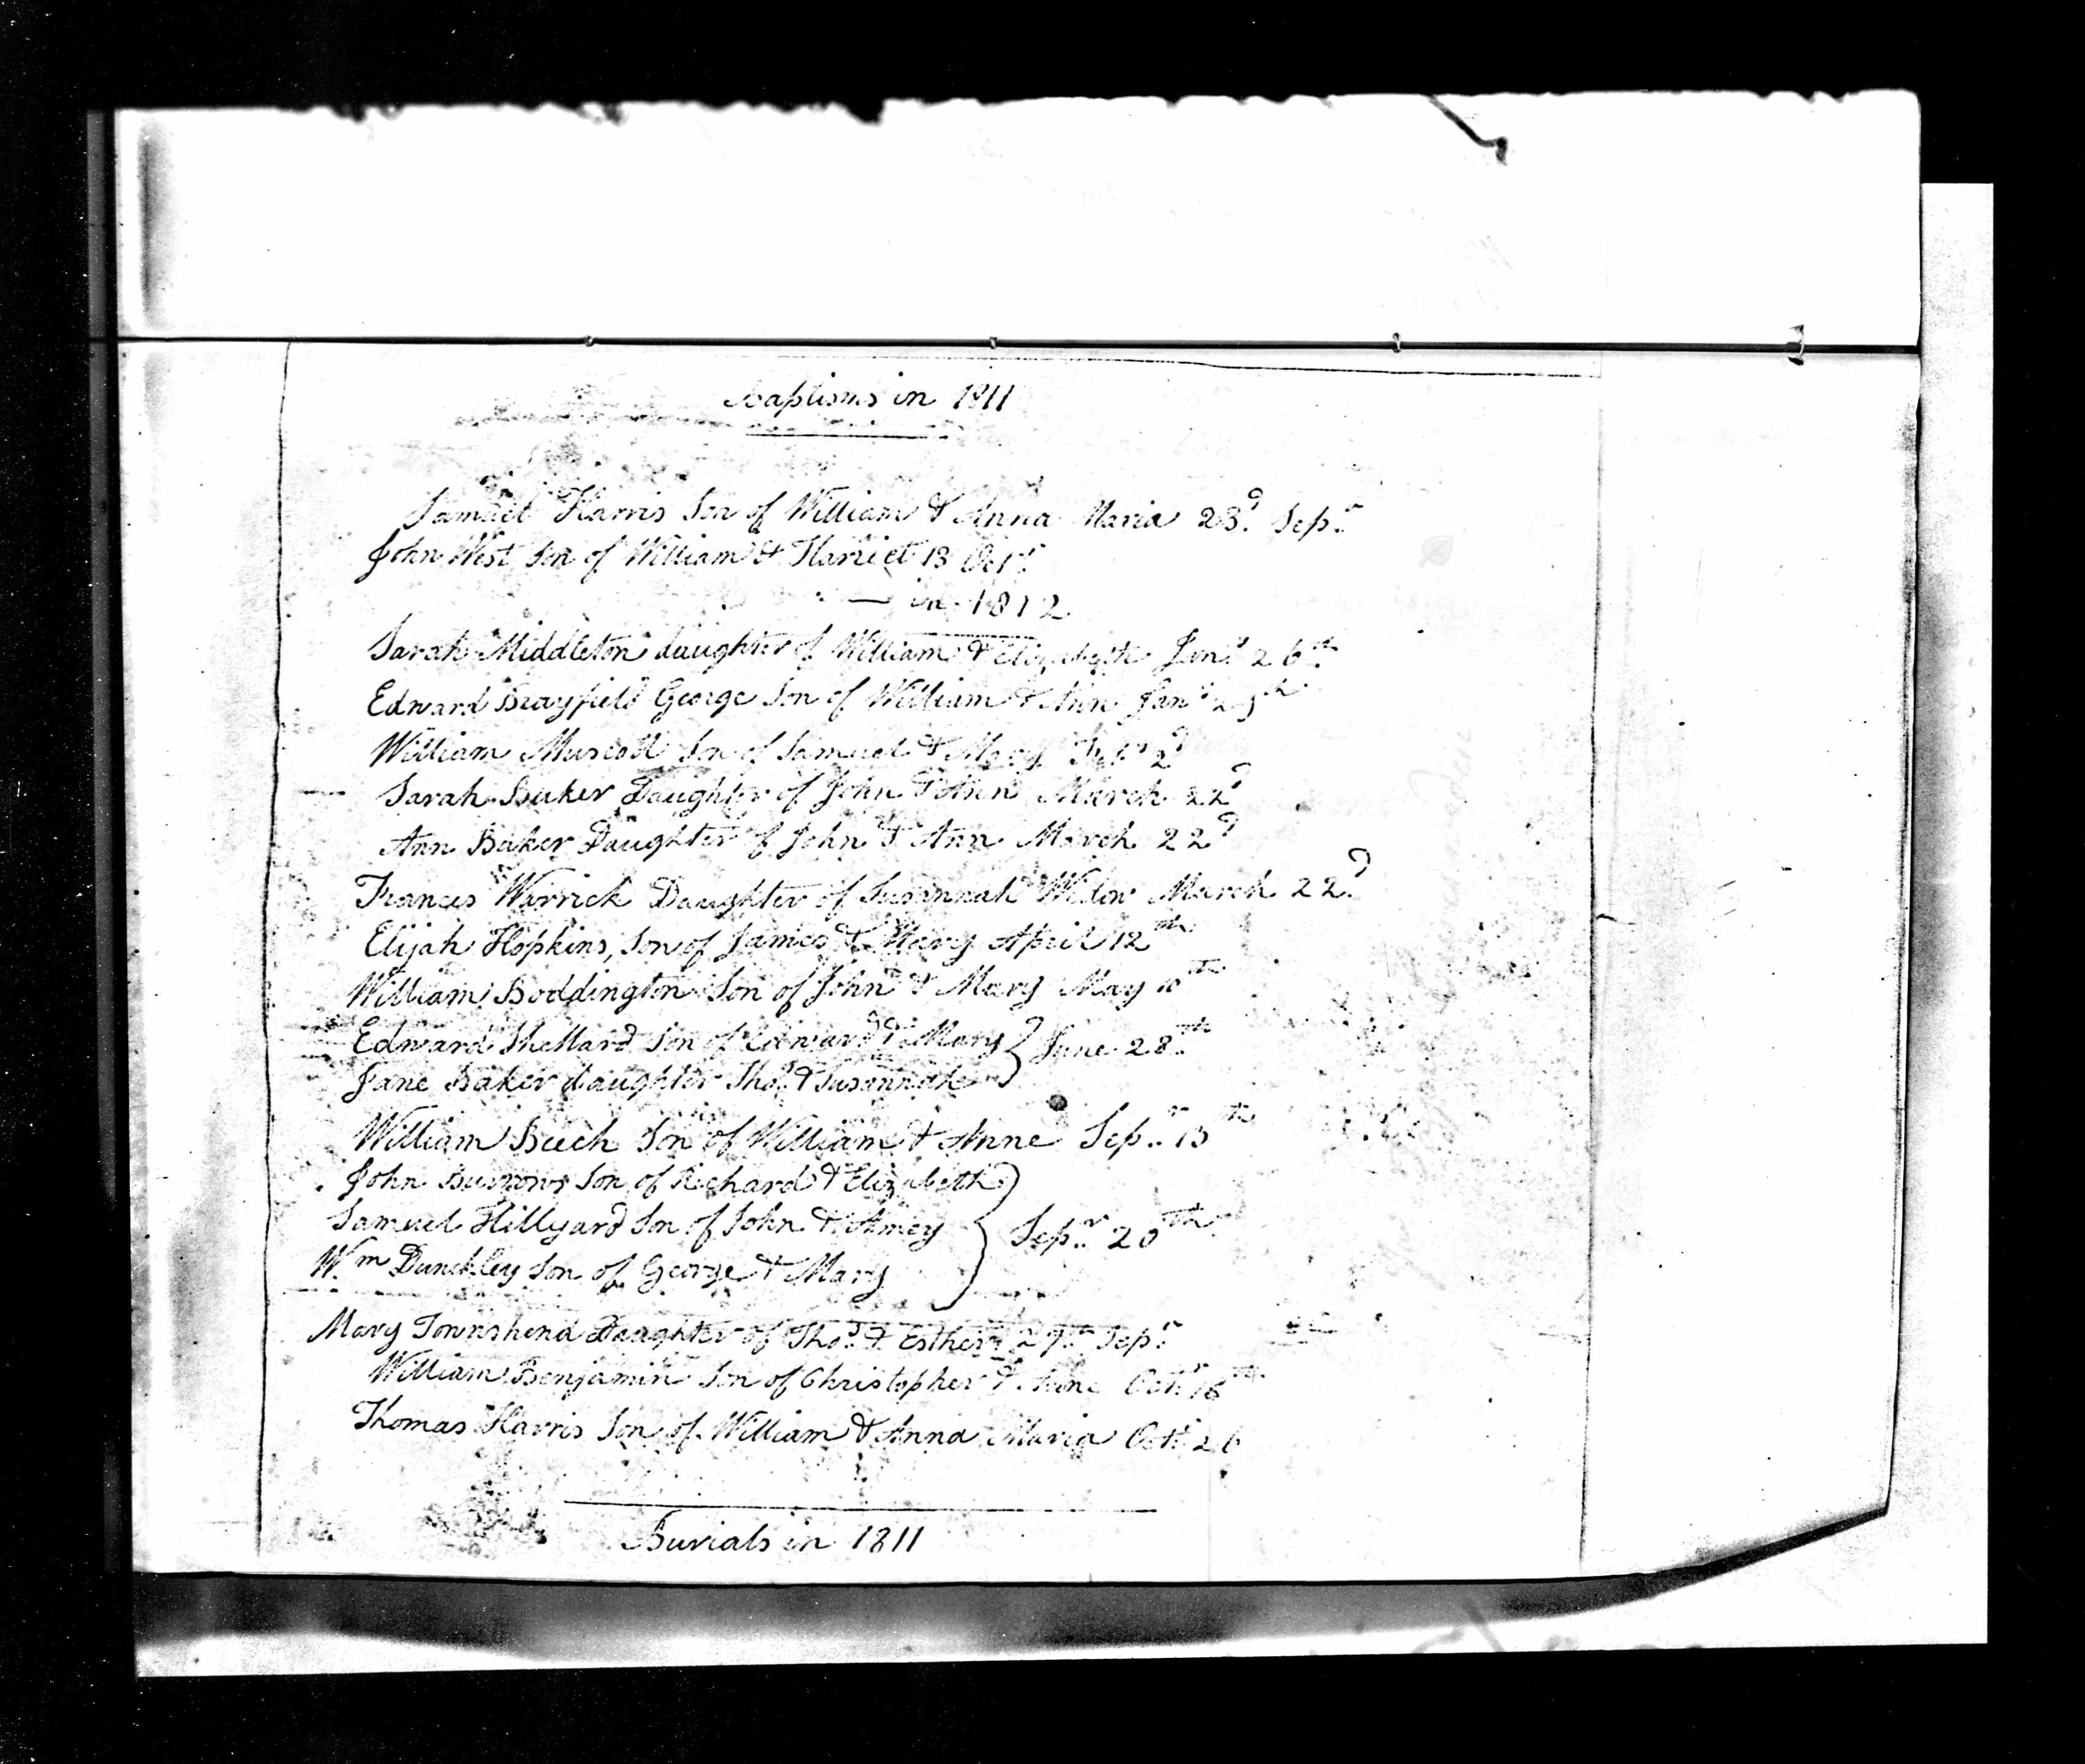 Baptisms in 1811
Samuel Harris Son of William & Anna Maria 23.d Sepr
John West Son of William & Harriet 13 Octr
— in 1812
Sarah Middleton daughter of William & Elizabeth Jany 26th
Edward Brayfield George Son of William & Ann Jany
William Muscott Son of Samuel & Mary Feby 2d
Sarah Baker Daughter of John & Ann March 22d
Ann Baker Daughter of John & Ann March 22d
Frances Warrick Daughter of Susannah Widow March 22.d
Elijah Hopkins, Son of James & Mary April 12th
William Boddington Son of John & Mary May 10th
Edward Shellard Son of Edward & Mary } June 28th
Jane Baker daughter Thos. & Susannah
William Beech Son of William & Anne Sepr. 13th
John Burrows Son of Richard & Elizabeth
Samuel Hillyard Son of John & Amey } Sepr. 20th
Wm Dunckley Son of George & Mary
Mary Townshend Daughter of Thos. & Esther 27th Sepr
William Benjamin Son of Christopher & Octr 18th
Thomas Harris Son of William & Anna Maria Octr 26
Burials in 1811